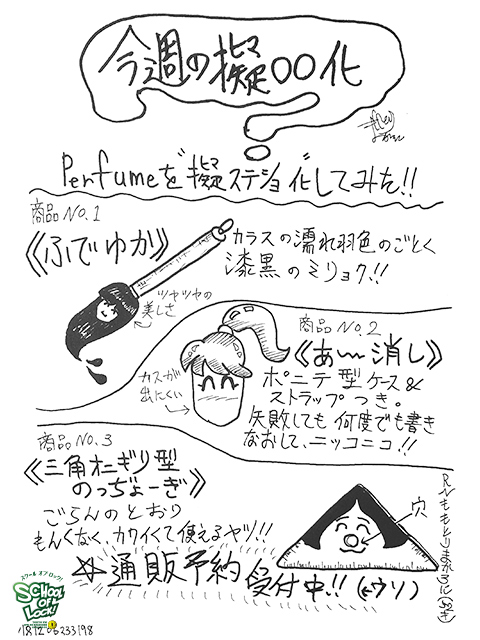 今週の擬○○化
Perfumeを"擬ステショ"化してみた!!
商品No.1
《ふでゆか》
カラスの濡れ羽色のごとく
漆黒のミリョク!!
ツヤツヤの
美しさ
商品No.2
《あ〜消し》
ポニテ型ケース&
ストラップつき。
失敗しても何度でも書き
なおして、ニッコニコ!!
カスが
出にくい
商品No.3
《三角オニギリ型
のっちょーぎ》
ごらんのとおり
もんくなく、カワイくて使えるヤツ!!
穴
☆通販予約受付中!!(←ウソ)
スクール オブ ロック!
SCHOOL
OF
LOCK!